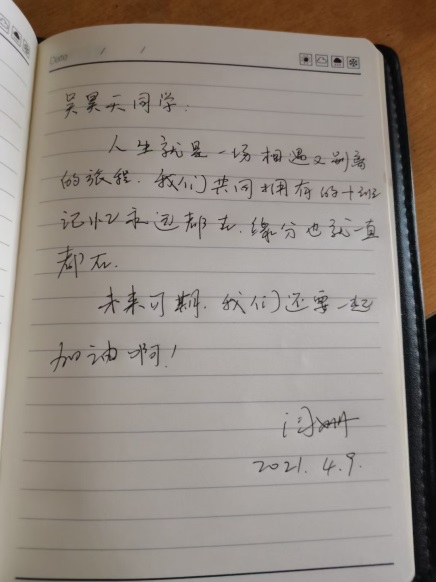 Date / /
吴昊天同学:
人生就是一场相遇又别离
的旅程.我们共同拥有的十班
记忆永远都在.缘分也就一直
都在.
未来可期.我们还要一起
加油啊!
闫姗
2021.4.9.